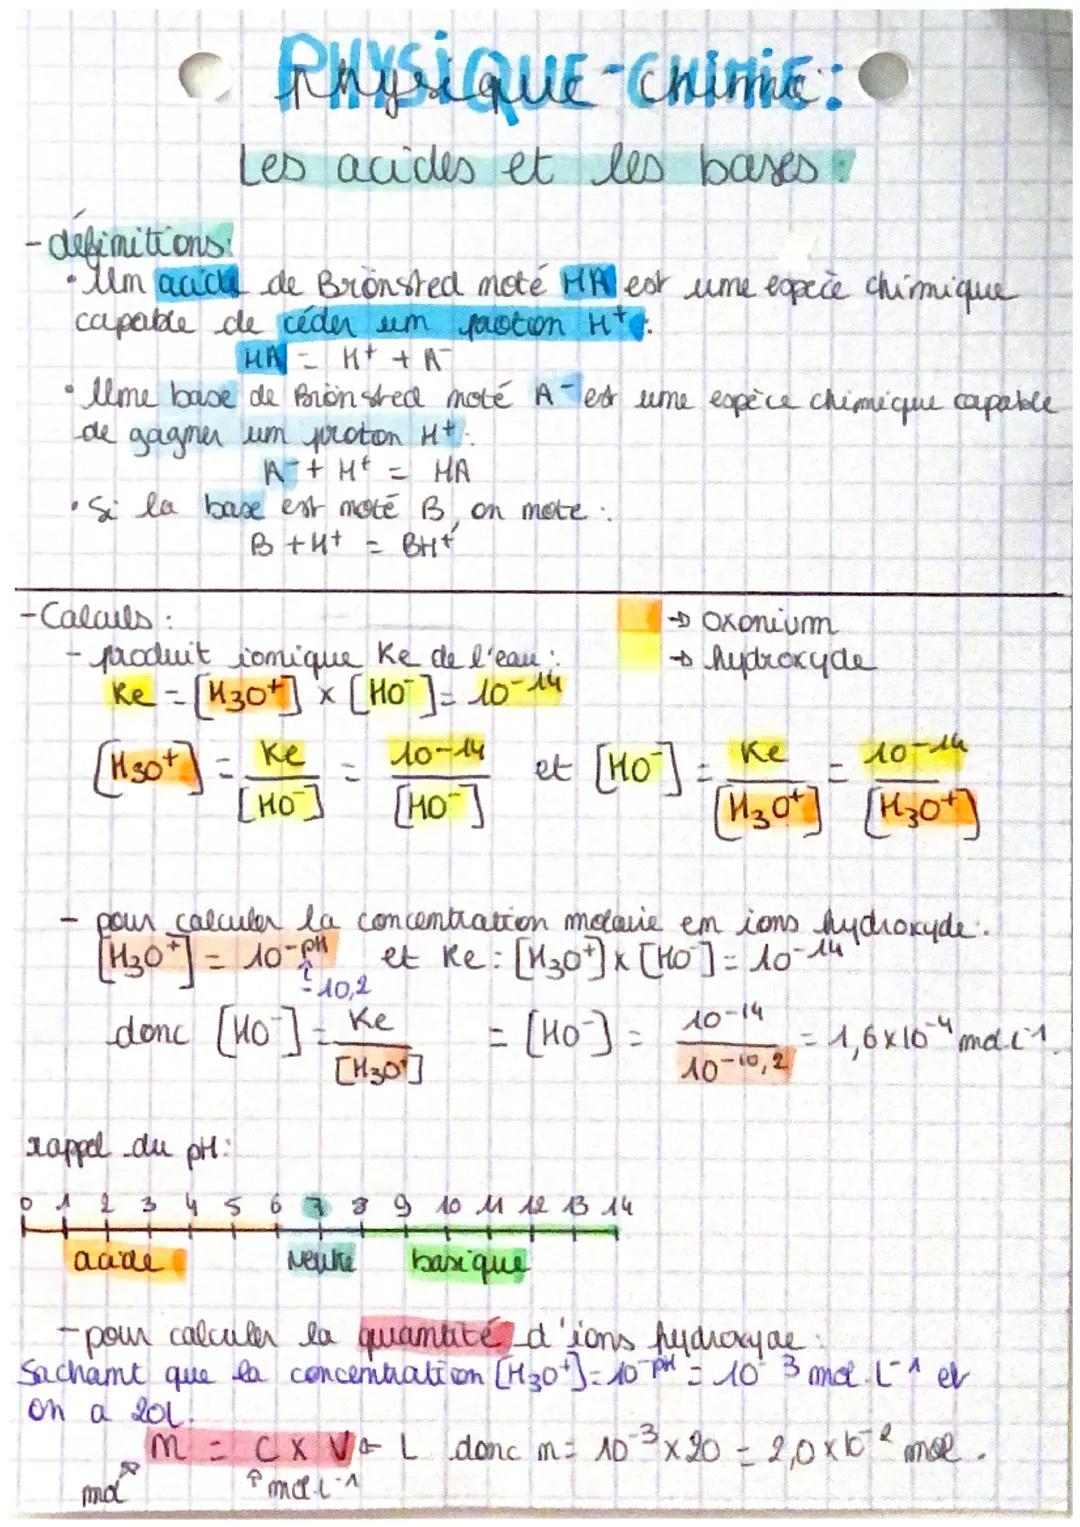 PHYSIQUE-CHIMIE:
Les acides et les bases:
- définitions:
• Un acide de Brönsted noté HA est une espèce chimique
capable de céder un proton H+.
HA = H+ + A-
• Une base de Brönsted noté A- est une espèce chimique capable
de gagner un proton H+.
A- + H+ = HA
• Si la base est noté B, on note :
B + H+ = BH+
- Calculs :
→ oxonium
→ hydroxyde
- produit ionique Ke de l'eau :
Ke = [H3O+] × [HO-] = 10-14
[H3O+] = Ke / [HO-] = 10-14 / [HO-] et [HO-] = Ke / [H3O+] = 10-14 / [H3O+]
- pour calculer la concentration molaire en ions hydroxyde:
[H3O+] = 10-pH et Ke : [H3O+] × [HO-] = 10-14
= 10,2
donc [HO-] = Ke / [H3O+] = [HO-] = 10-14 / 10-10,2 = 1,6×10-4 mol.L-1.
rappel du pH:
0 1 2 3 4 5 6 7 8 9 10 11 12 13 14
acide neutre basique
- pour calculer la quantité d'ions hydroxyde :
Sachant que la concentration [H3O+] = 10-pH = 10-3 mol.L-1 et
on a 20L.
n = C × V ← L donc n = 10-3 × 20 = 2,0×10-2 mol.
mol ↑ mol.L-1